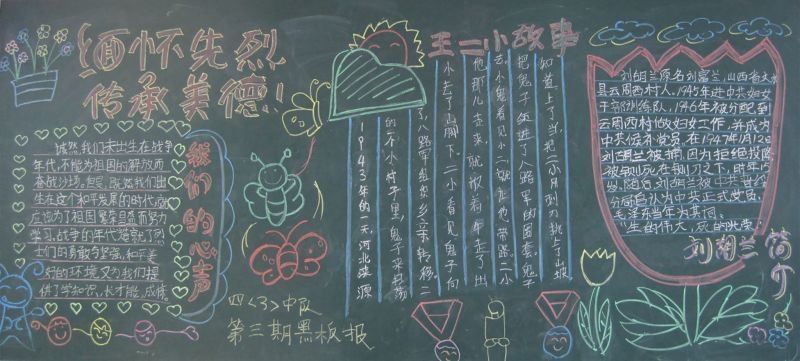 缅怀先烈
传承美德!
诚然,我们未出生在战争
年代,不能为祖国的解放而
奋战沙场。但是,既然我们出
生在这个和平发展的时代,就
应该为了祖国繁荣昌盛而努力
学习。战争的年代造就了烈
士们的勇敢与坚强,和平美
好的环境又为我们提
供了学知识,长才能,成
我们的心声
四<3>中队
第三期黑板报
王二小故事
1943年的一天,河北涞源
的一个小村子里,鬼子来扫荡
了,八路军 乡亲转移。二
小去了山脚下。二小看见鬼子向
他那儿走来,就放着牛走了出
去,小鬼子看见小二,就让他带路。二小
把鬼子带进了八路军的圈套,鬼子
知道上了当,把二小用刺刀挑上了山坡
刘胡兰原名刘富兰,山西省文水
县云周西村人。1945年进中共妇女
干部训练队,1946年被分配到
云周西村做妇女工作,并成为
中共候补党员。在1947年1月12日
刘胡兰被捕,因为拒绝投降
被铡死在铡刀之下,时年15
岁。随后,刘胡兰被中共晋绥
分局追认为中共正式党员。
毛泽东当年为其题词:
“生的伟大,死的光荣”
刘胡兰简介